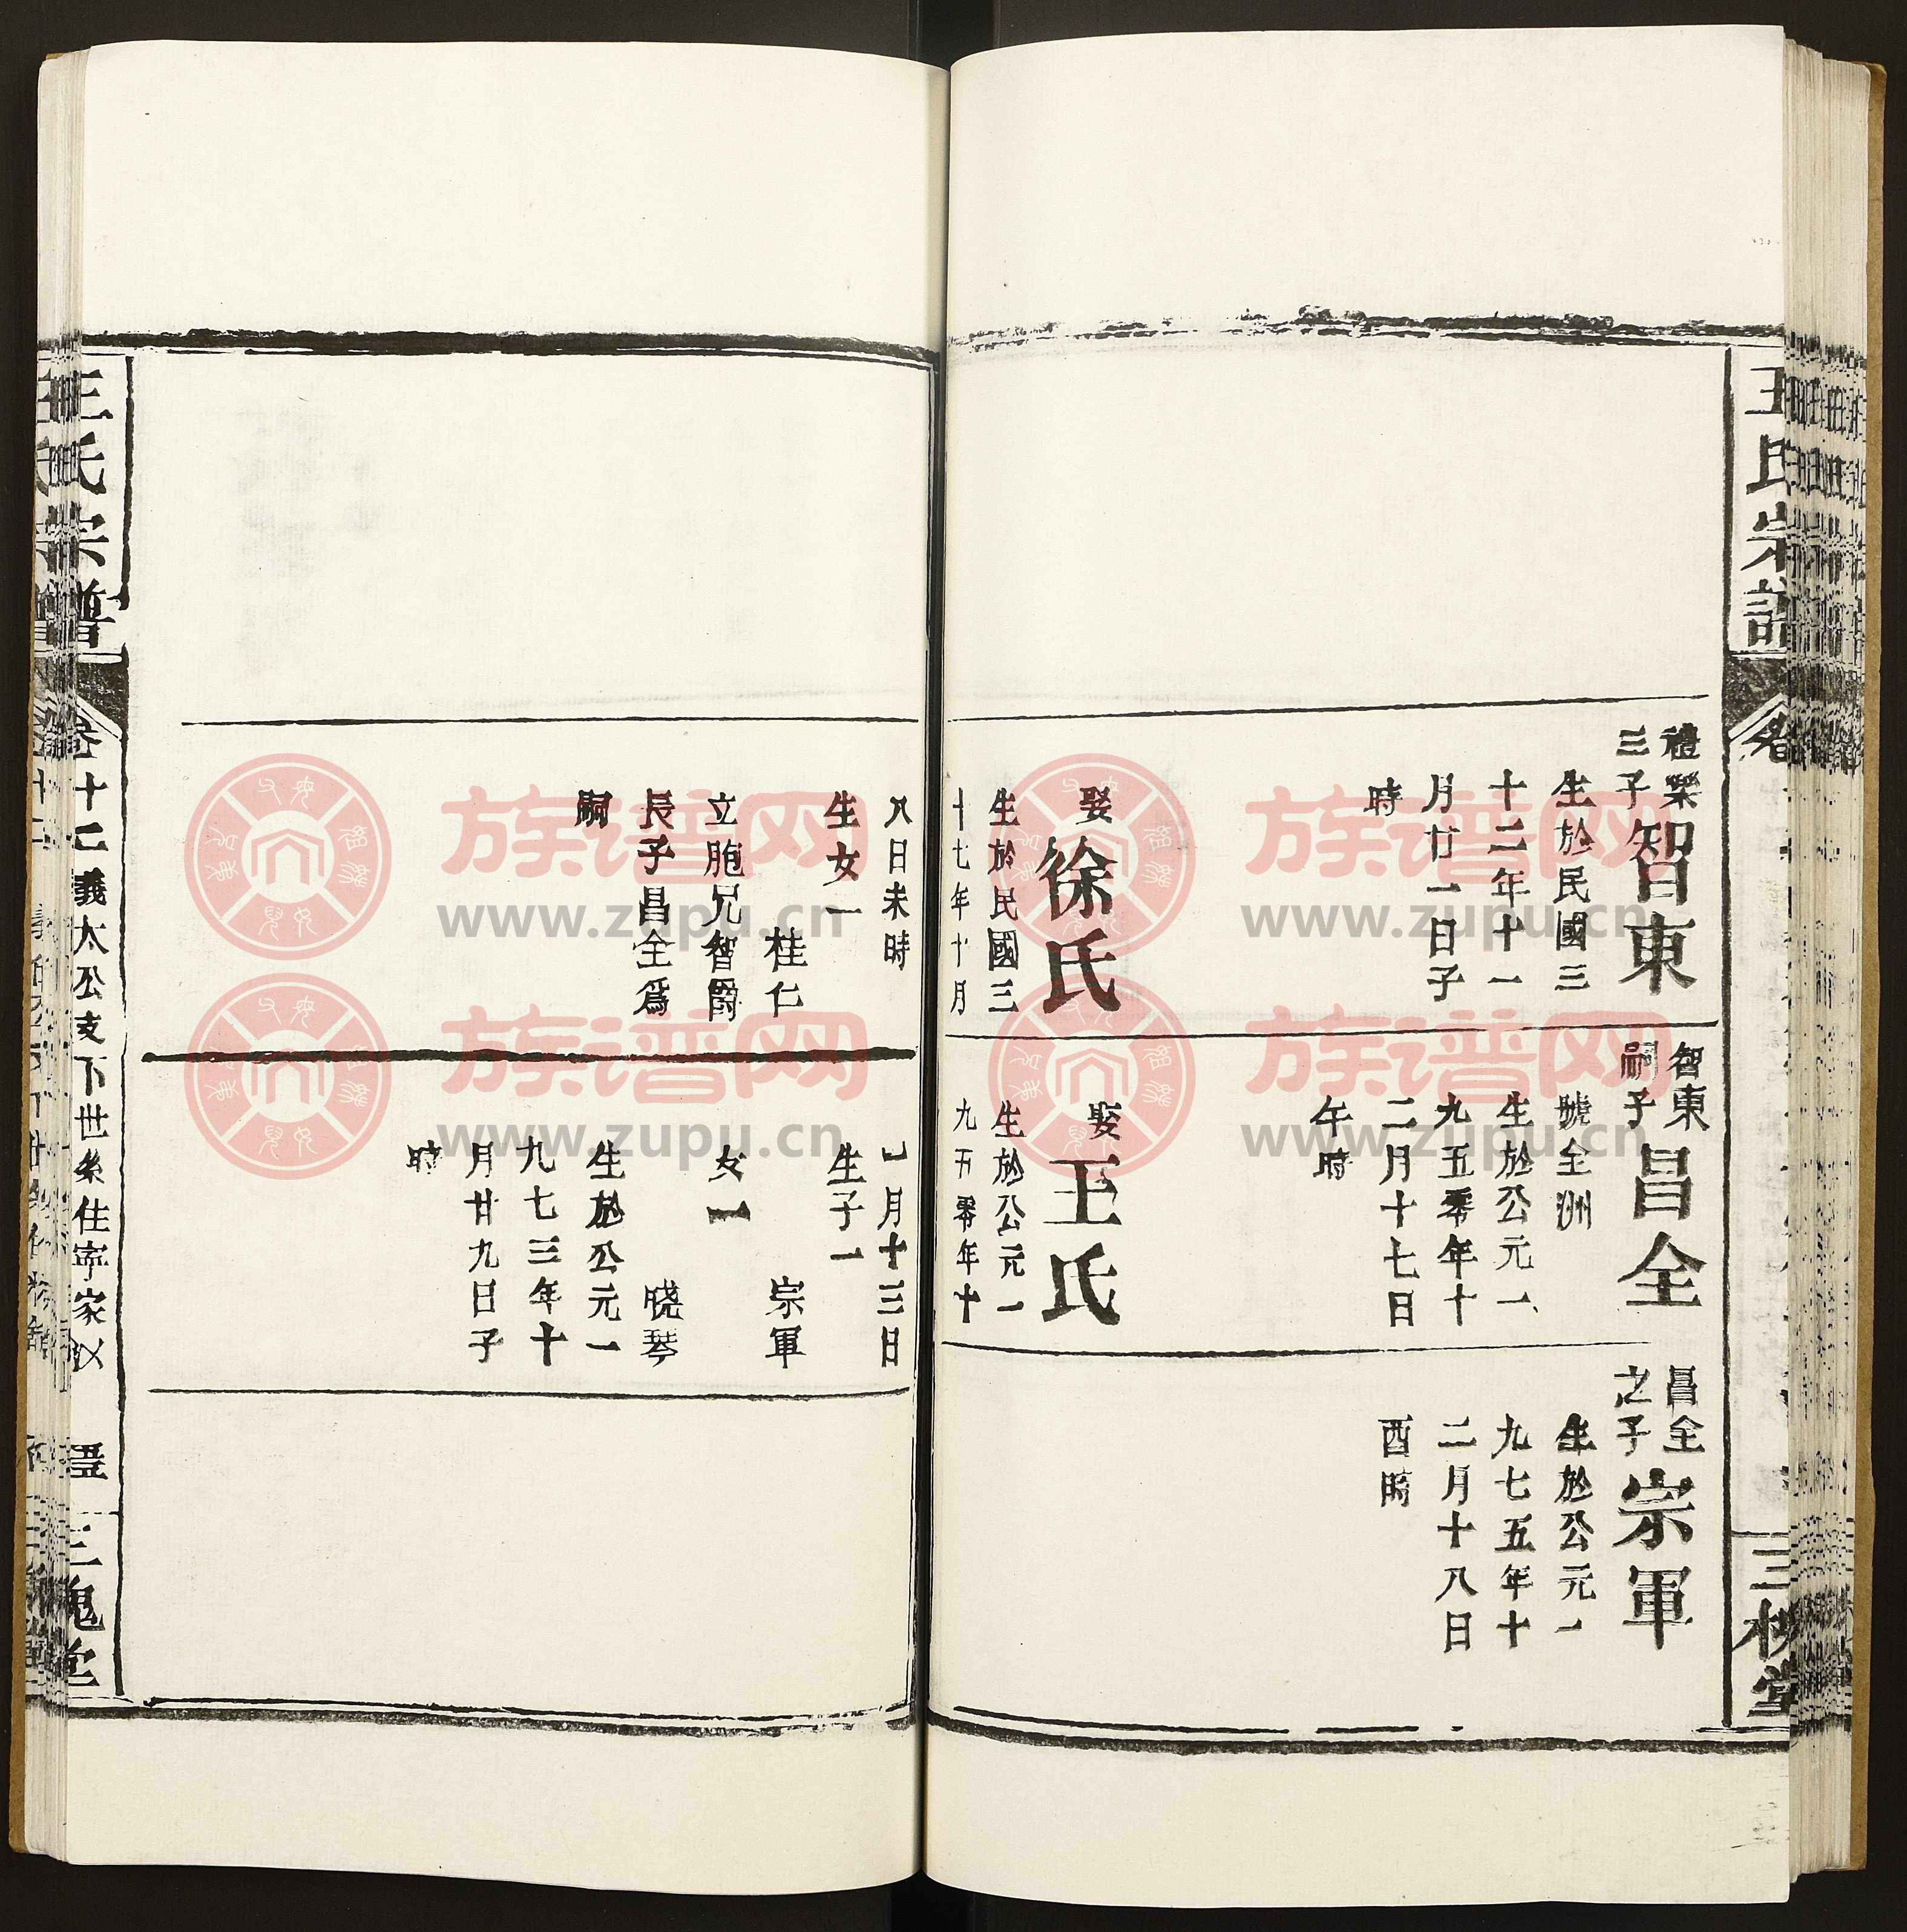 王氏宗譜
三槐堂
禮榮
三子
智東
生於民國三
十二年十一
月廿一日子
時
娶
徐氏
生於民國三
十七年十月
八日未時
生女一
桂仁
立胞兄智爵
長子昌全爲
嗣
智東
嗣子
昌全
號全洲
生於公元一
九五零年十
二月十七日
午時
娶
王氏
生於公元一
九五零年十
一月十三日
生子一
宗軍
女一
曉琴
生於公元一
九七三年十
月廿九日子
時
昌全
之子
宗軍
生於公元一
九七五年十
二月十八日
酉時
王氏宗譜
卷十二義太公支下世系住寧家以
三槐堂
族谱网
www.zupu.cn
族谱网
www.zupu.cn
族谱网
www.zupu.cn
族谱网
www.zupu.cn